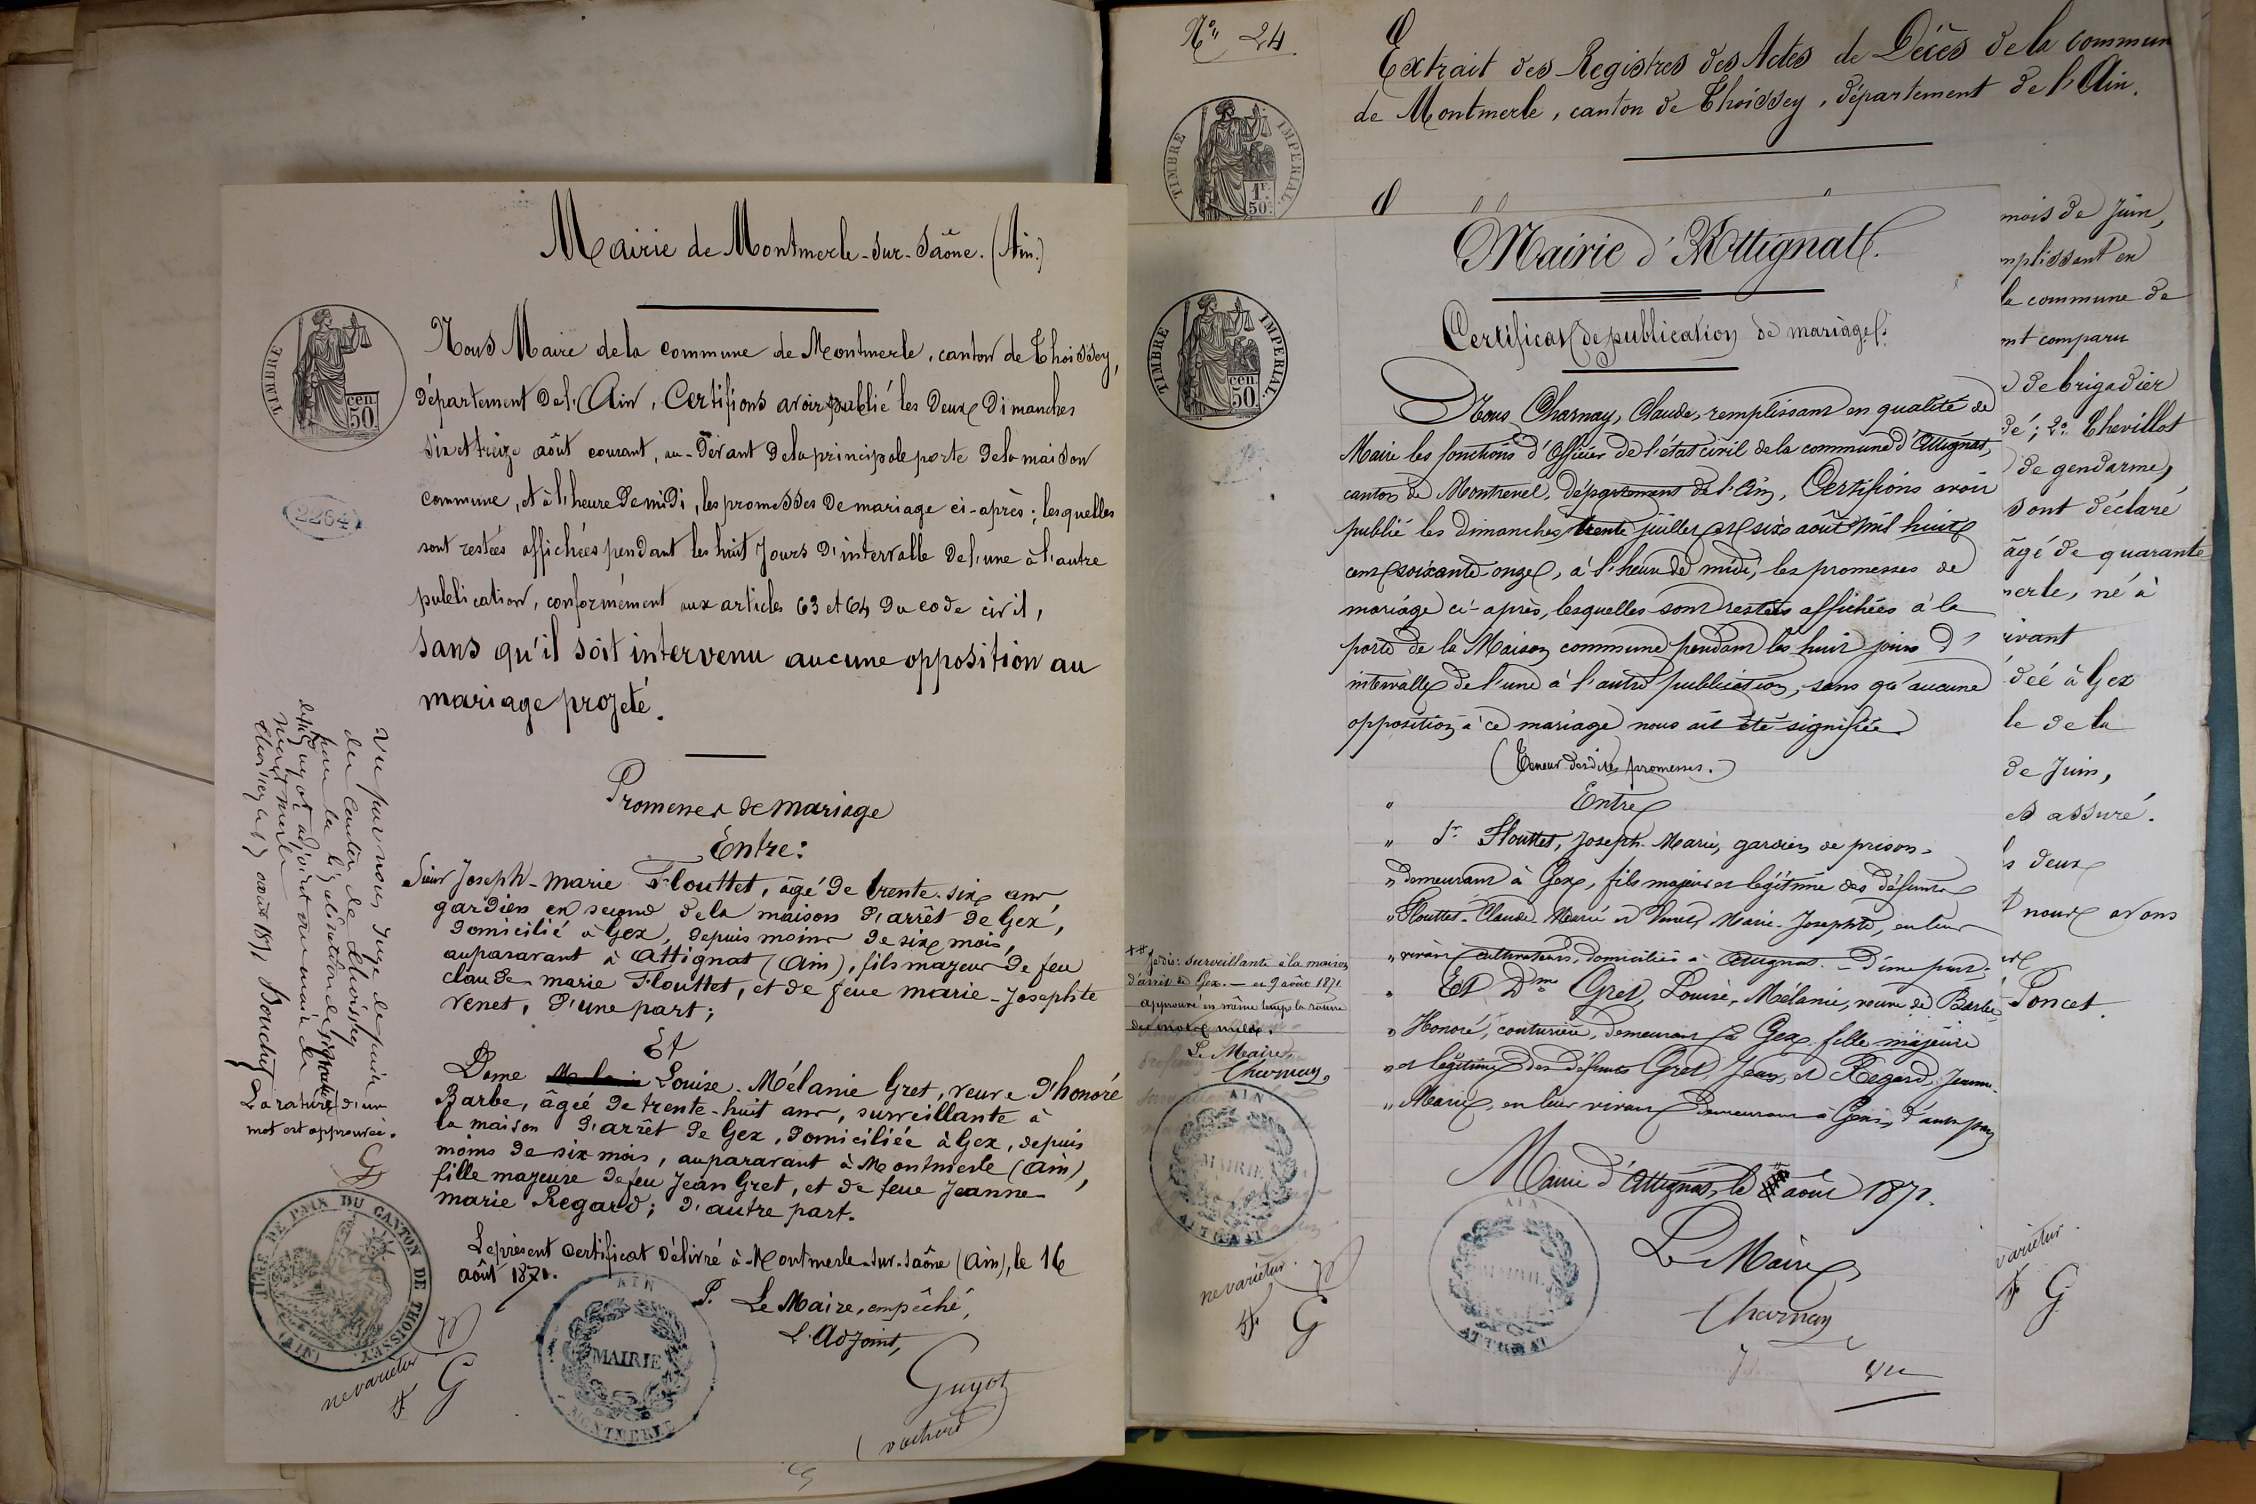 Mairie de Montmerle-sur-Saône. (Ain.)
TIMBRE
cen.
50.
Nous Maire de la commune de Montmerle, canton de Thoissey,
département de l'Ain, Certifions avoir publié les deux Dimanches
six et treize août courant, au-devant de la principale porte de la maison
commune, et à l'heure de midi, les promesses de mariage ci-après; lesquelles
sont restées affichées pendant les huit jours d'intervalle de l'une à l'autre
publication, conformément aux articles 63 et 64 du code civil,
sans qu'il soit intervenu aucune opposition au
mariage projeté.
2264
Promesses de mariage
Entre:
Sieur Joseph-Marie Flouttet, âgé de trente-six ans,
gardien en second de la maison d'arrêt de Gex,
domicilié à Gex, depuis moins de six mois,
auparavant à Attignat (Ain), fils majeur de feu
Claude-marie Flouttet, et de feue marie-Josephte
Venet, d'une part;
Et
Dame Louise-Mélanie Gret, veuve d'honoré
Barbe, âgée de trente-huit ans, surveillante à
la maison d'arrêt de Gex, domiciliée à Gex, depuis
moins de six mois, auparavant à Montmerle (Ain),
fille majeure de feu Jean Gret, et de feue Jeanne
marie Regard; d'autre part.
Le présent certificat délivré à Montmerle-sur-Saône (Ain), le 16
août 1871.
P. Le Maire, empêché,
L'Adjoint,
Guyot
Vu par nous Juge de paix
du Canton de Thoissey
pour la légalisation de la signature
de Guyot adjoint au maire de
Montmerle
Thoissey le 17 août 1871
Bouchet
La rature d'un
mot est approuvée.
G
JUGE DE PAIX DU CANTON DE THOISSEY
(AIN)
ne varietur
G
AIN
MAIRIE
MONTMERLE
N° 24
Extrait des Registres des Actes de Décès de la commune
de Montmerle, canton de Thoissey, département de l'Ain.
TIMBRE IMPERIAL
1f.
50c.
mois de Juin,
remplissant en
la commune de
ont comparu
de brigadier
; 2° Chevillot
de gendarme,
sont déclaré
âgé de quarante
né à
à Gex
de la
de Juin,
assuré.
deux
nous avons
Poncet.
varietur
G
Mairie d'Attignat.
Certificat de publication de mariage.
TIMBRE IMPERIAL
cen.
50.
Nous Charnay, Claude, remplissant en qualité de
Maire les fonctions d'Officier de l'état civil de la commune d'Attignat,
canton de Montrevel, département de l'Ain, Certifions avoir
publié les dimanches trente juillet et six août mil huit
cent soixante-onze, à l'heure de midi, les promesses de
mariage ci-après, lesquelles sont restées affichées à la
porte de la Maison commune pendant les huit jours d'
intervalle de l'une à l'autre publication, sans qu'aucune
opposition à ce mariage nous ait été signifiée
(Teneur desdites promesses.)
Entre
" Sr Flouttet, Joseph-Marie, gardien de prison,
" demeurant à Gex, fils majeur et légitime des défunts
" Flouttet-Claude-Marie et Venet, Marie-Josephte, en leur
" vivant cultivateurs, domiciliés à Attignat - D'une part;
" Et Dme Gret, Louise-Mélanie, veuve de Barbe,
" Honoré, couturière, demeurant à Gex, fille majeure
" et légitime des défunts Gret, Jean, et Regard, Jeanne
" Marie, en leur vivant demeurant à d'autre part
Mairie d'Attignat, le août 1871.
Le Maire
Charnay
Jadis: surveillante à la maison
d'arrêt de Gex. — et 9 août 1871
approuvé en même temps la rature
de mots nuls.
Le Maire,
Charnay
AIN
MAIRIE
ATTIGNAT
ne varietur
G
AIN
MAIRIE
ATTIGNAT